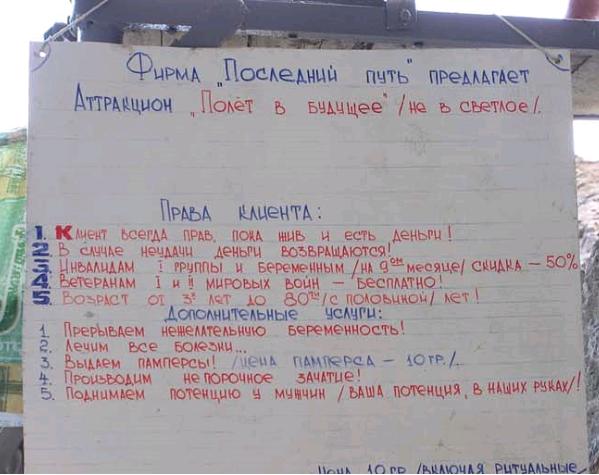 Фирма „Последний путь" предлагает
Аттракцион „Полёт в будущее" /не в светлое/.
Права клиента:
1. Клиент всегда прав, пока жив и есть деньги!
2. В случае неудачи деньги возвращаются!
3. Инвалидам I группы и беременным /на 9ом месяце/ скидка – 50%
4. Ветеранам I и II мировых войн – бесплатно!
5. Возраст от 3х лет до 80ти /с половиной/ лет!
Дополнительные услуги:
1. Прерываем нежелательную беременность!
2. Лечим все болезни...
3. Выдаем памперсы! /цена памперса – 10 гр./.
4. Производим не порочное зачатие!
5. Поднимаем потенцию у мужчин /ваша потенция, в наших руках/!
Цена 10 гр /включая ритуальные